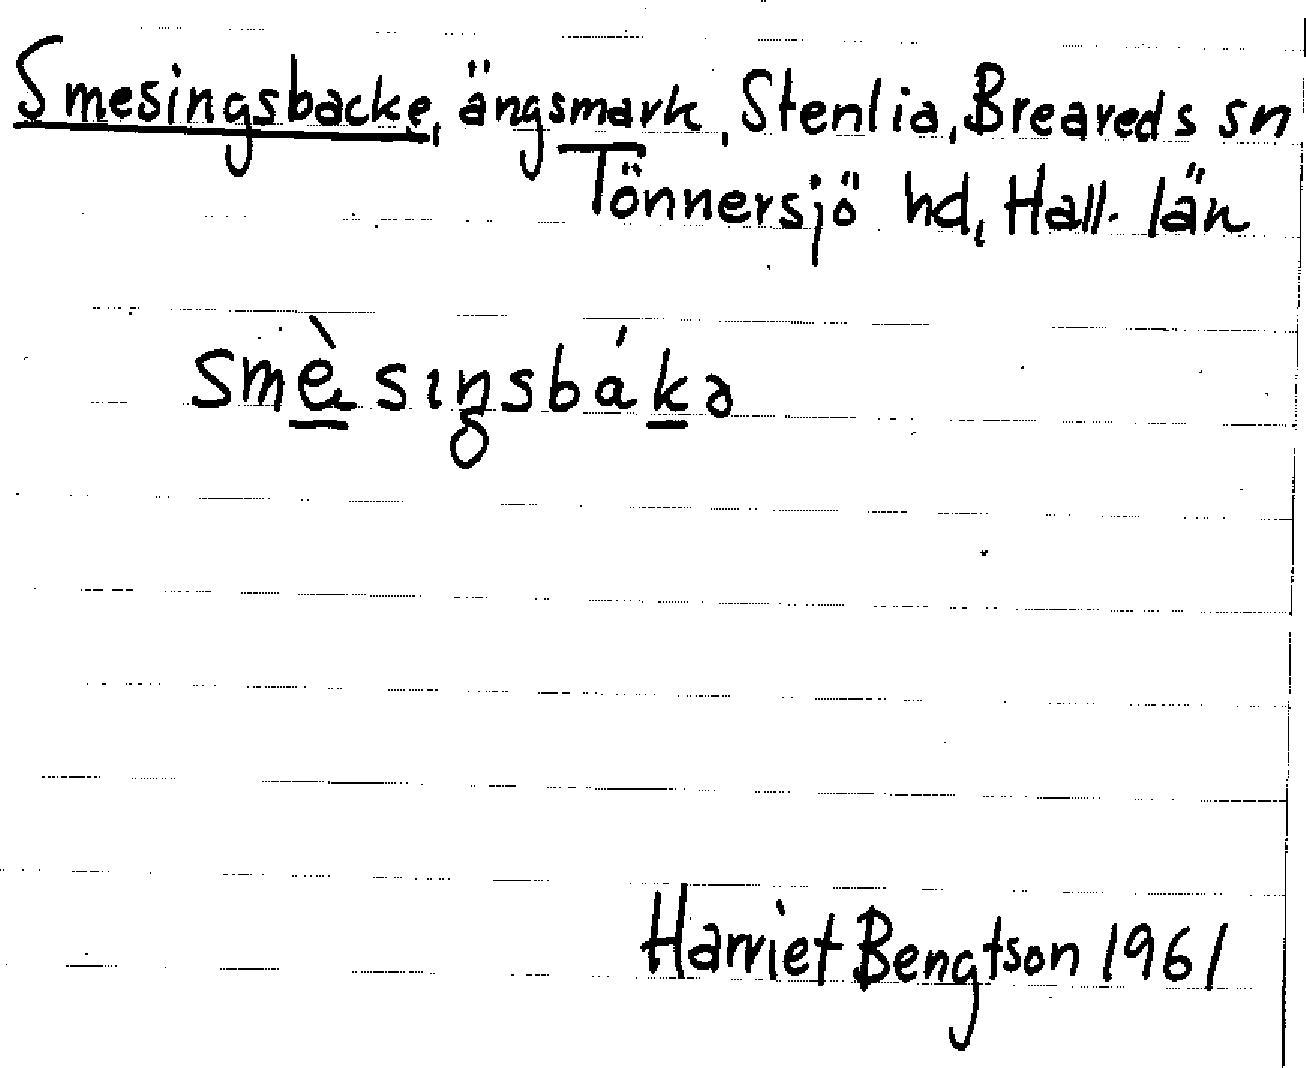 Smesingsbacke, ängsmark, Stenlia, Breareds sn
Tönnersjö hd, Hall. län
smè̱sıŋsbáḵə
Harriet Bengtson 1961